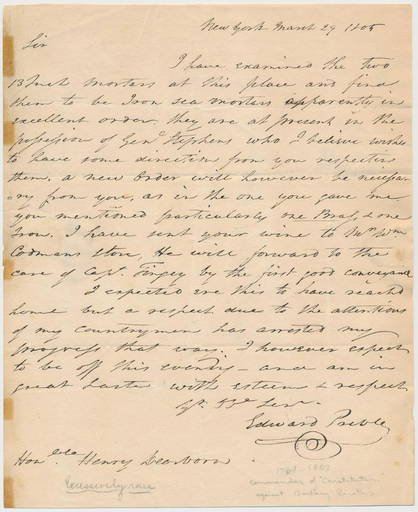 New York March 29 1805
Sir
I have examined the two
13 Inch Mortars at this place and find
them to be Iron sea mortars apparently in
excellent order, they are at present in the
possession of Genl. Stephens who I believe wishes
to have some direction from you respecting
them. a new Order will however be necessa
ry from you, as in the one you gave me
you mentioned particularly one Brass, & one
Iron. I have sent your wine to Mr. Wm
Codmans store, He will forward to the
care of Capt. Tingey by the first good conveyance
I expected ere this to have reached
home but a respect due to the attentions
of my countrymen has arrested my
progress that way. I however expect
to be off this evening – and am in
great haste with esteem & respect
Yr. Obt Serv.
Edward Preble
Honble Henry Dearborn
Excessively rare
1761-1807
commander of "Constitution"
against Barbary Pirates